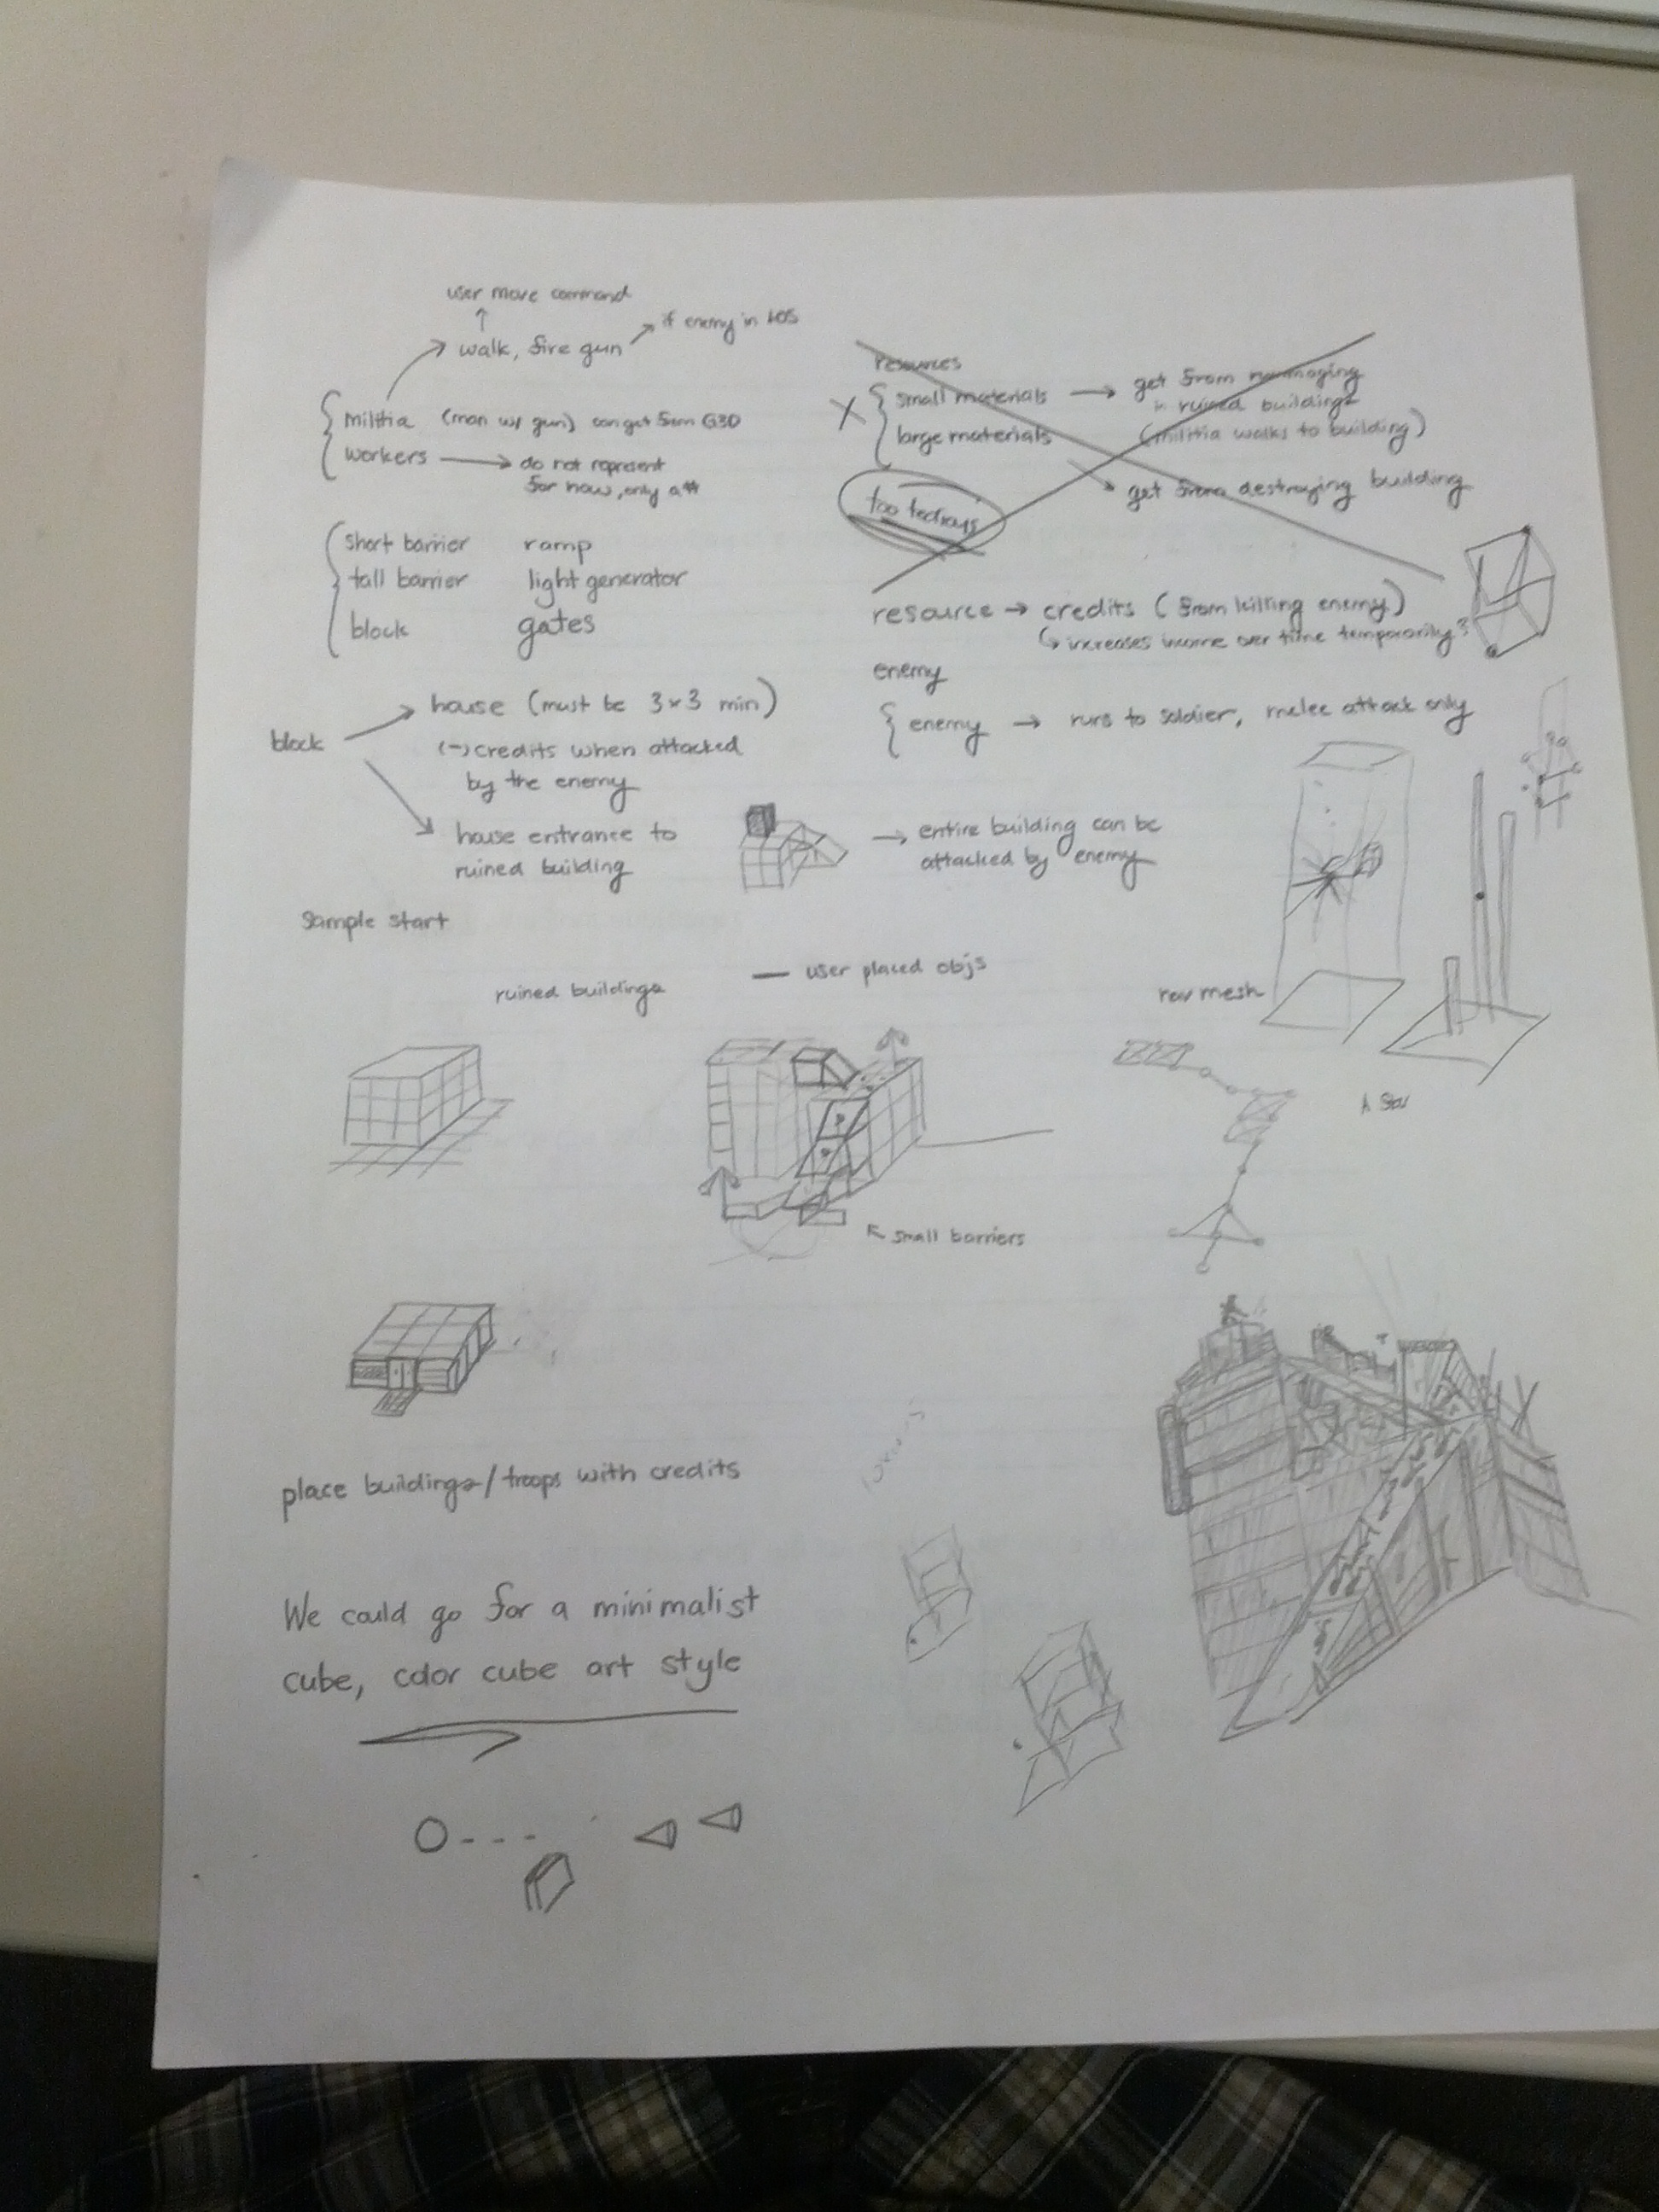 user move command
walk, fire gun
if enemy in LOS
militia (man w/ gun) can get from G3D
workers
do not represent
for now, only a #
short barrier ramp
tall barrier light generator
block gates
block
house (must be 3x3 min)
(-) credits when attacked
by the enemy
house entrance to
ruined building
entire building can be
attacked by enemy
resources
small materials
get from
in ruined buildings
large materials
(militia walks to building)
get from destroying building
too
resource → credits (from killing enemy)
increases income over time temporarily?
enemy
enemy → runs to soldier, melee attack only
Sample start
ruined buildings
user placed objs
nav mesh
A Star
small barriers
place buildings/troops with credits
We could go for a minimalist
cube, color cube art style